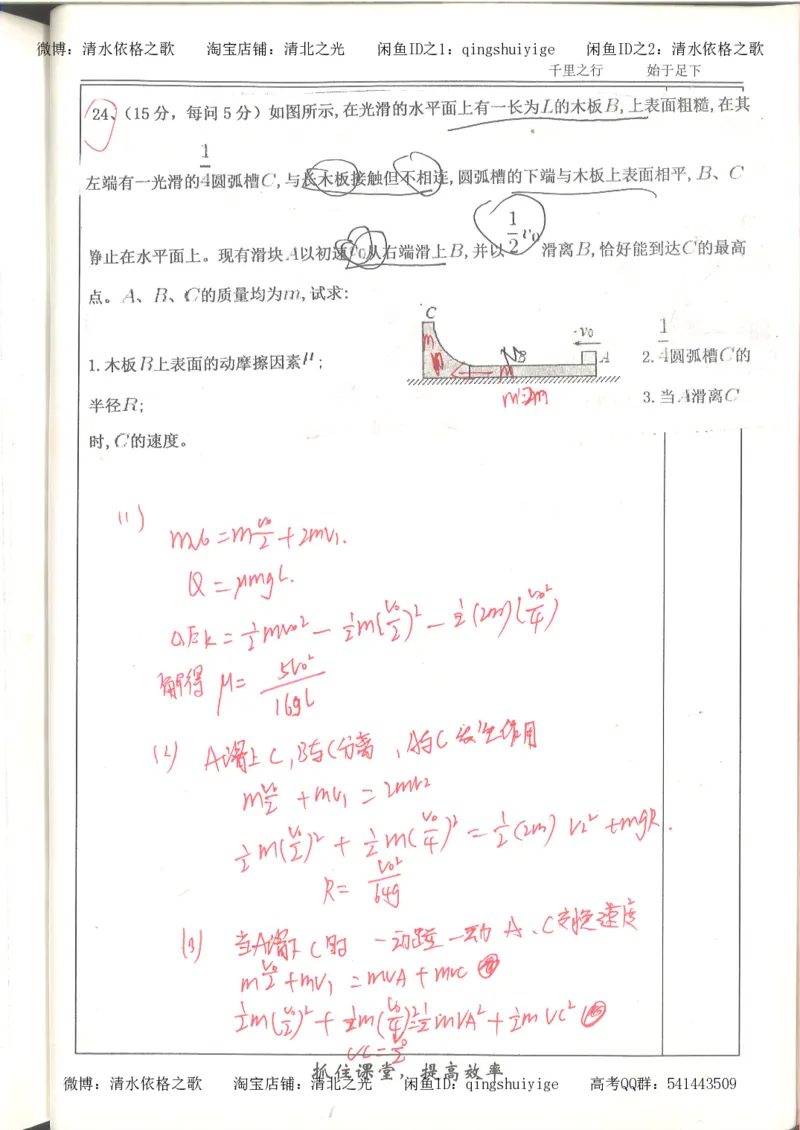 微博：清水依格之歌 淘宝店铺：清北之光 闲鱼ID之1：qingshuiyige 闲鱼ID之2：清水依格之歌
千里之行 始于足下
24、（15分，每问5分）如图所示,在光滑的水平面上有一长为L的木板B,上表面粗糙,在其
左端有一光滑的1/4圆弧槽C,与长木板接触但不相连,圆弧槽的下端与木板上表面相平,B、C
静止在水平面上。现有滑块A以初速v₀从右端滑上B,并以1/2 v₀滑离B,恰好能到达C的最高
点。A、B、C的质量均为m,试求:
C
v₀
B
A
m
m
m'=2m
1.木板B上表面的动摩擦因素μ;
2.1/4圆弧槽C的
半径R;
3.当A滑离C
时,C的速度。
(1)
mv₀=m v₀/2+2mv₁.
Q=μmgL.
ΔEk=1/2mv₀²-1/2m(v₀/2)²-1/2(2m)(v₀²/4)
解得 μ=5v₀²/16gL
(2) A滑上C,B与C分离,A与C发生作用
m v₀/2+mv₁=2mv₂
1/2m(v₀/2)²+1/2m(v₀/4)²=1/2(2m)v₂²+mgR.
R=v₀²/64g
(3) 当A滑下C时 一动碰一动 A、C交换速度
m v₀/2+mv₁=mvA+mvC
1/2m(v₀/2)²+1/2m(v₀/4)²=1/2mvA²+1/2mvC²
vC=v₀/2
抓住课堂，提高效率
微博：清水依格之歌 淘宝店铺：清北之光 闲鱼ID：qingshuiyige 高考QQ群：541443509